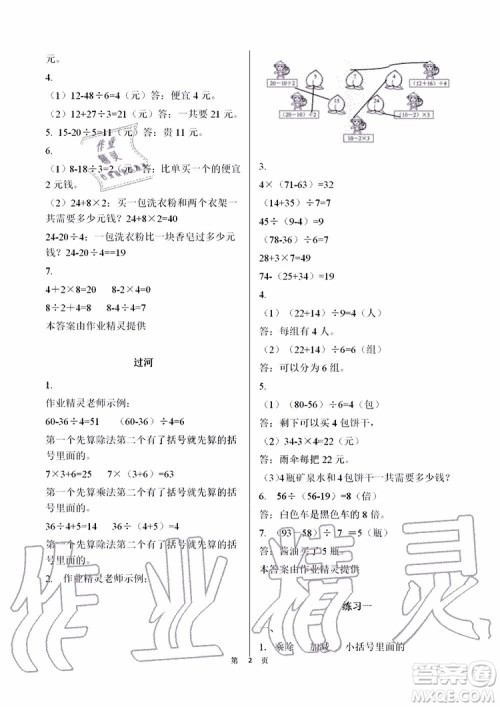 元。
4.
（1）12-48÷6=4（元）答：便宜 4 元。
（2）12+27÷3=21（元）答：一共要 21 元。
5. 15-20÷5=11（元）答：贵 11 元。
6.
（1）8-18÷3=2（元）答：比单买一个的便宜
2 元钱。
（2）24+8×2；买一包洗衣粉和两个衣架一
共需要多少元钱？24+8×2=40
24-20÷4；一包洗衣粉比一块香皂贵多少元
钱？24-20÷4==19
7.
4+2×8=20 8-2×4=0
8÷2+4=8 8-4÷4=7
本答案由作业精灵提供
过河
1.
作业精灵老师示例：
60-36÷4=51 （60-36）÷4=6
第一个先算除法第二个有了括号就先算的括
号里面的。
7×3+6=27 7×（3+6）=63
第一个先算乘法第二个有了括号就先算的括
号里面的。
36÷4+5=14 36÷（4+5）=4
第一个先算除法第二个有了括号就先算的括
号里面的。
2. 作业精灵老师示例：
20-10÷2
（12+6）÷2
（12+16）÷4
（20-10）÷2
10-2×3
（10-2）×3
3.
4×（71-63）=32
（14+35）÷7=7
45÷（9-4）=9
（78-36）÷6=7
28+3×7=49
74-（34+15）=25
4.
（1）（22+14）÷9=4（人）
答：每组有 4 人。
（2）（22+14）÷6=6（组）
答：可以分为 6 组。
5.
（1）（80-56）÷6=4（包）
答：可以买 4 包饼干。
（2）34-3×4=22（元）
答：雨伞每把 22 元。
（3）4瓶矿泉水和 4包饼干一共需要多少钱？
6. 56÷（56-19）=8（倍）
答：白色车是黑色车的 8 倍。
7. （93-58）÷7 =5（瓶）
答：酱油买了5 瓶。
本答案由作业精灵提供
练习一
、
1. 乘除 加减 小括号里面的
第 2 页
作业精灵
答案圈